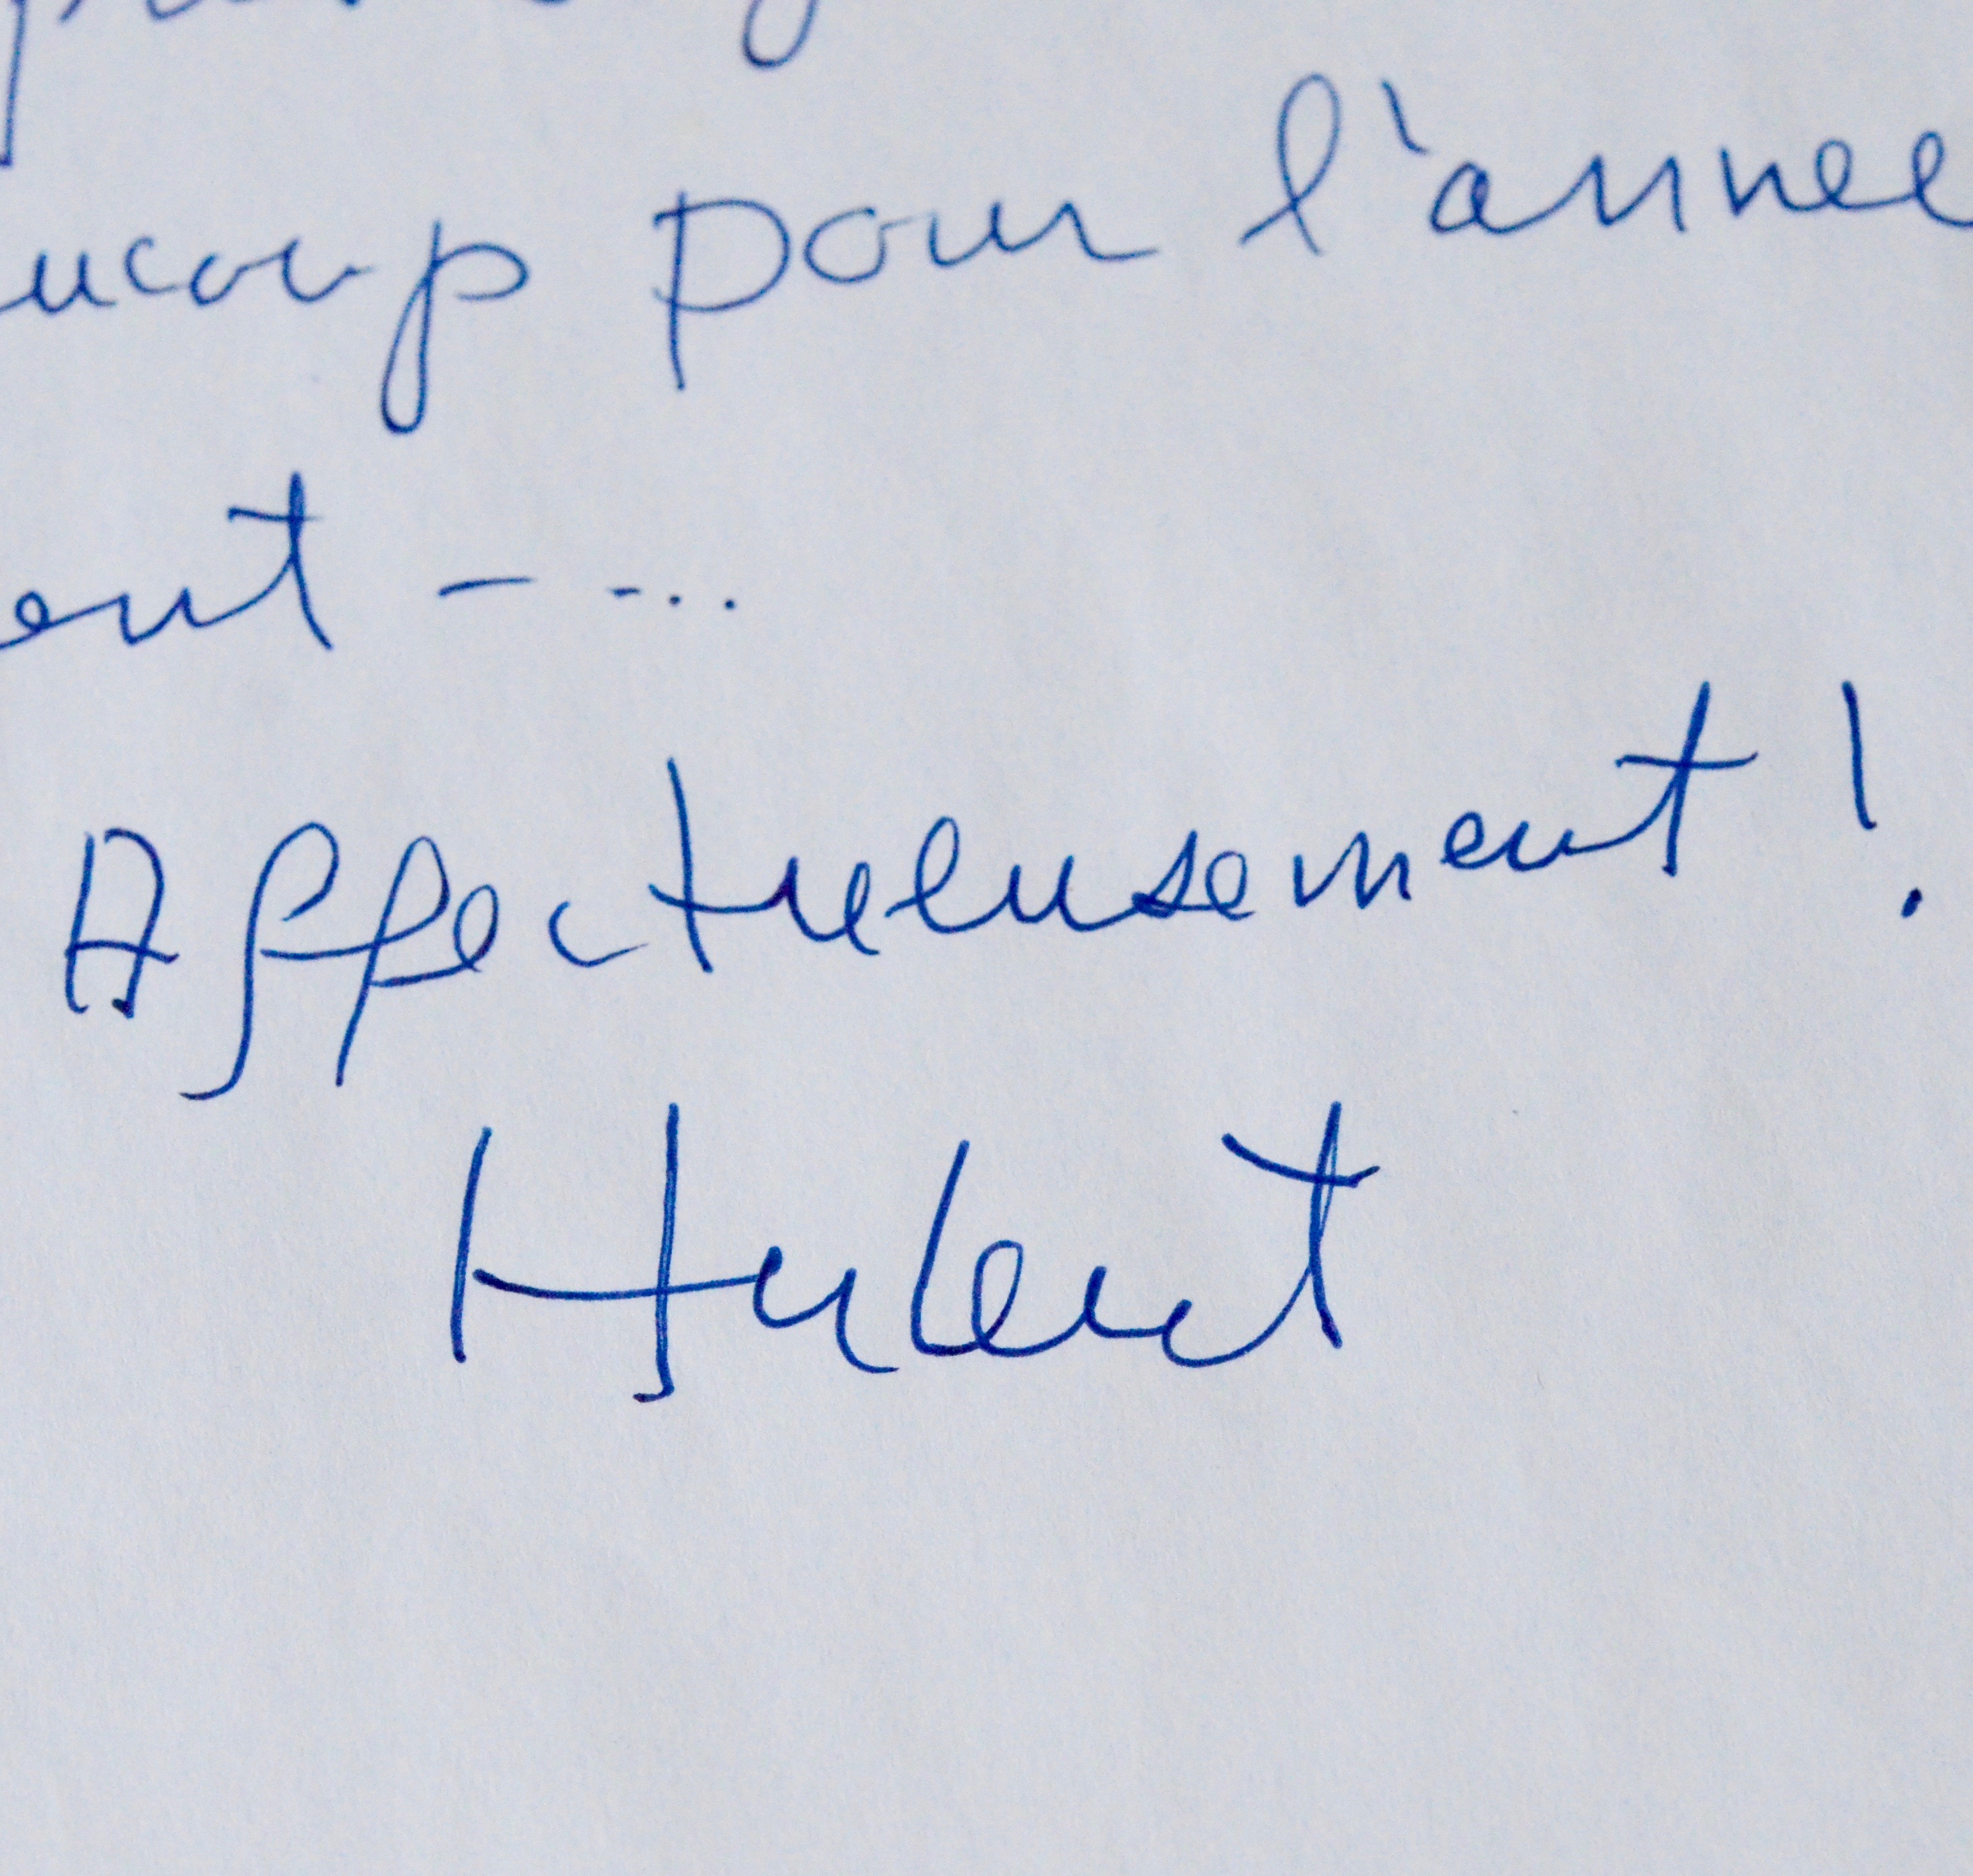 ucoup pour l'année
ent - -...
Affectueusement !
Hubert